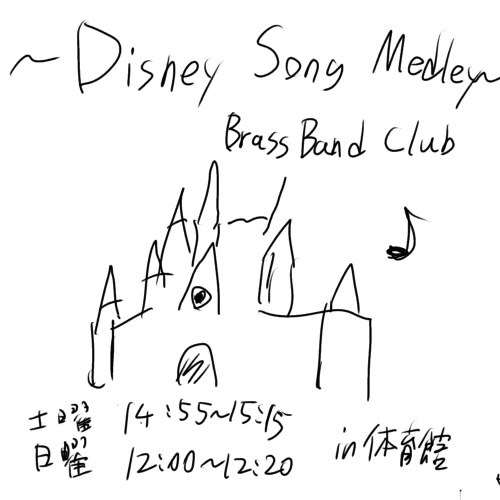 ~Disney Song Medley~
Brass Band Club
土曜 14:55~15:15
日曜 12:00~12:20
in 体育館